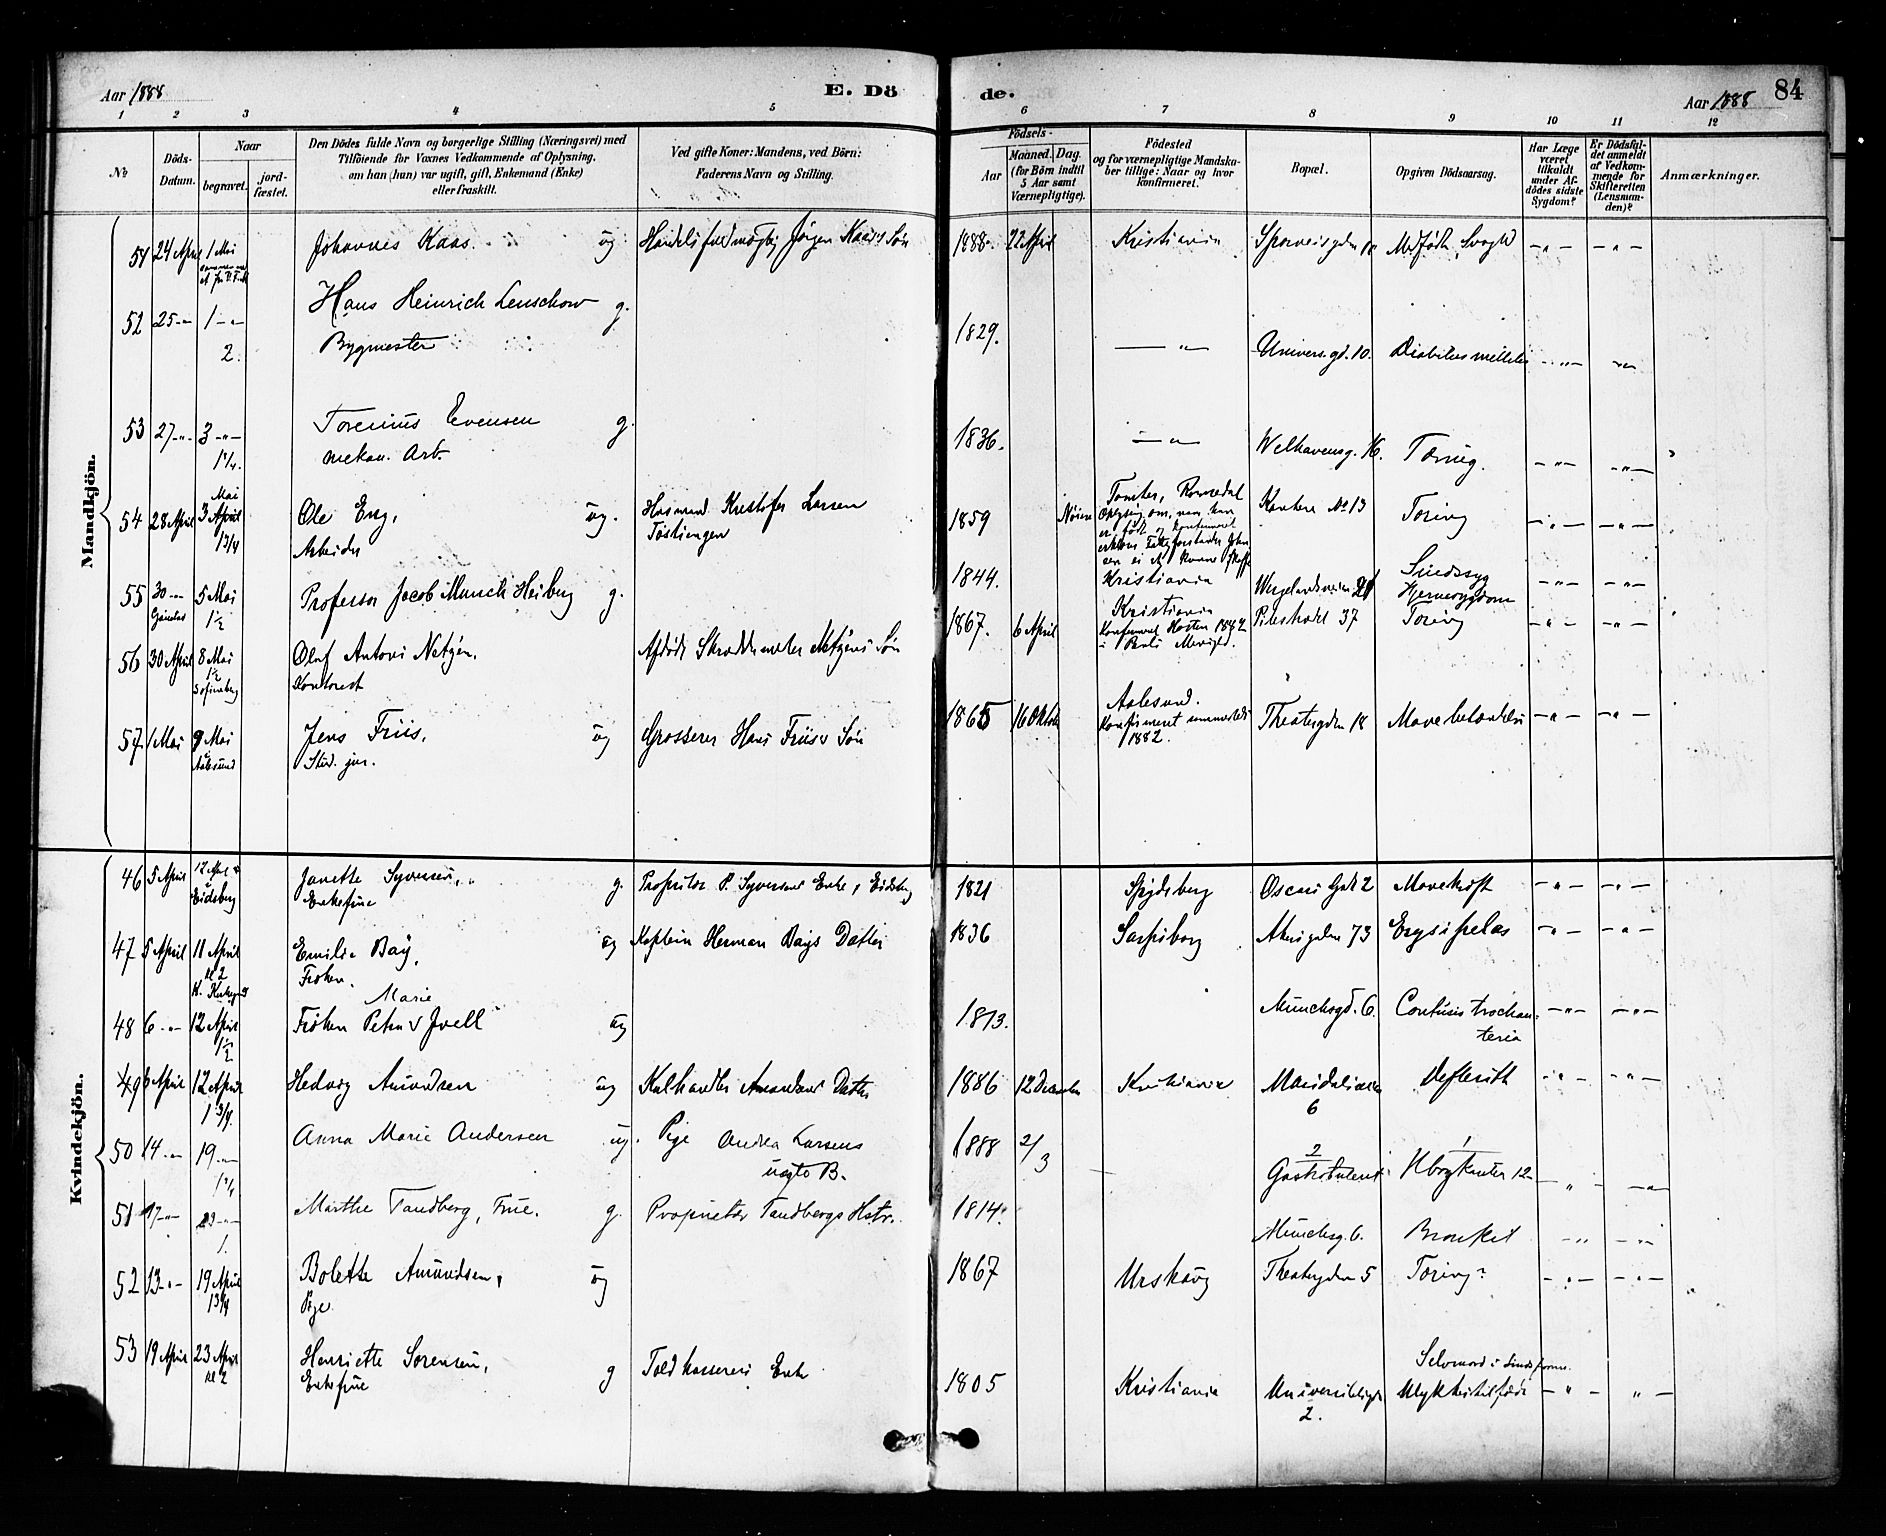 Aar 1888
E. Dö
de.
Aar 1888
84
1 2 3 4 5 6 7 8 9 10 11 12
No
Döds-
Datum.
Naar
begravet.
jord-
fæstet.
Den Dödes fulde Navn og borgerlige Stilling (Næringsvei) med
Tilföiende for Voxnes Vedkommende af Oplysning,
om han (hun) var ugift, gift, Enkemand (Enke)
eller fraskilt.
Ved gifte Koner: Mandens, ved Börn:
Faderens Navn og Stilling.
Födsels-
Aar
Maaned. Dag.
(for Börn indtil
5 Aar samt
Værnepligtige).
Födested
og for værnepligtige Mandska-
ber tillige: Naar og hvor
konfirmeret.
Bopæl.
Opgiven Dödsaarsag.
Har Læge
været
tilkaldt
under Af-
dödes sidste
Sygdom?
Er Dödsfal-
det anmeldt
af Vedkom-
mende for
Skifteretten
(Lensman-
den)?
Anmærkninger.
Mandkjön.
51 24 April 1 Mai Johannes Kaas ug Handelsfuldmægtig Jørgen Kaas's Søn 1888 22 April Kristiania Sporveisgaden Medfødt Svaghed -"- -"-
52 25 -"- 1 -"- Hans Heinrich Lenschow g. 1829. -"- Univers.gd. 10. Diabetes mellitus -"- -"-
2. Bygmester
53 27 -"- 3 -"- Torenius Evensen g. 1836. -"- Welhavensg. 16. Tæring. -"- -"-
1 1/4. mekan. Arb.
Mai
54 28 April 3 April Ole Eng, ug. Husmand Kristofer Larsen 1859 Tomter, Romedal No 13 Tæring -"- -"-
1 3/4 Arbeider
55 30 -"- 5 Mai Professor Jacob Munch Heiberg g. 1844. Kristiania Wergelandsveien Sindssyg -"- -"-
1 1/2 Hjernesygdom
56 30 April 8 Mai Olaf Antoni Netzén. Afdøde Skræddermester Netzéns Søn 1867. 6 April Kristiania Pilestrædet 37 Tæring -"- -"-
1 1/2
Sofienberg Kontorist
Konfirmeret Høsten 1882
57 1 Mai 9 Mai Jens Friis, ug Grosserer Hans Friis's Søn 1865 16 Oktober Aalesund. Theatergaden 18 Mavebetændelse -"- -"-
i Aalesund Stud. jur.
Konfirmeret sammesteds
1882.
Kvindekjön.
46 5 April 12 April Janette Syversen, g. Proprietær P. Syversens Enke, Eidsberg 1821 Spydeberg Oscars Gade 2 Mavekræft -"- -"-
Eidsberg Enkefrue
47 5 April 11 April Emilie Bay, ug Kaptein Herman Bays Datter 1836 Sarpsborg Akersgaden 73 Erysipelas -"- -"-
kl 2 Frøken.
Marie
48 6 -"- 12 April Frøken Petra Juell ug 1813. Munchsgd. 6. Contusio trochan-
teria -"- -"-
1 1/2
49 6 April 12 April Hedvig Amundsen ug Kulhandler Amundsens Datter 1886 12 December Kristiania Maridalsveien Defterit -"- -"-
1 3/4. 6
50 14 -"- 19 -"- Anna Marie Andersen ug. Pige Andrea Larsens 1888 2/3 -"- -"-
1 1/4 uægte B.
51 17 -"- 23 -"- Marthe Tandberg, Frue. g. Proprietær Tandbergs Hstr. 1814. Munchsg. 6. Bronkit -"- -"-
1.
52 13 -"- 19 April Bolette Amundsen, ug 1867 Urskoug Theatergaden 5 Tæring? -"- -"-
1 3/4 Pige.
53 19 April 23 April Henriette Sørensen, g Toldkasserers Enke 1805 Kristiania Universitetsgd Selvmord i Sinds
kl 2 Enkefrue 2. Ulykkestilfælde -"- -"-